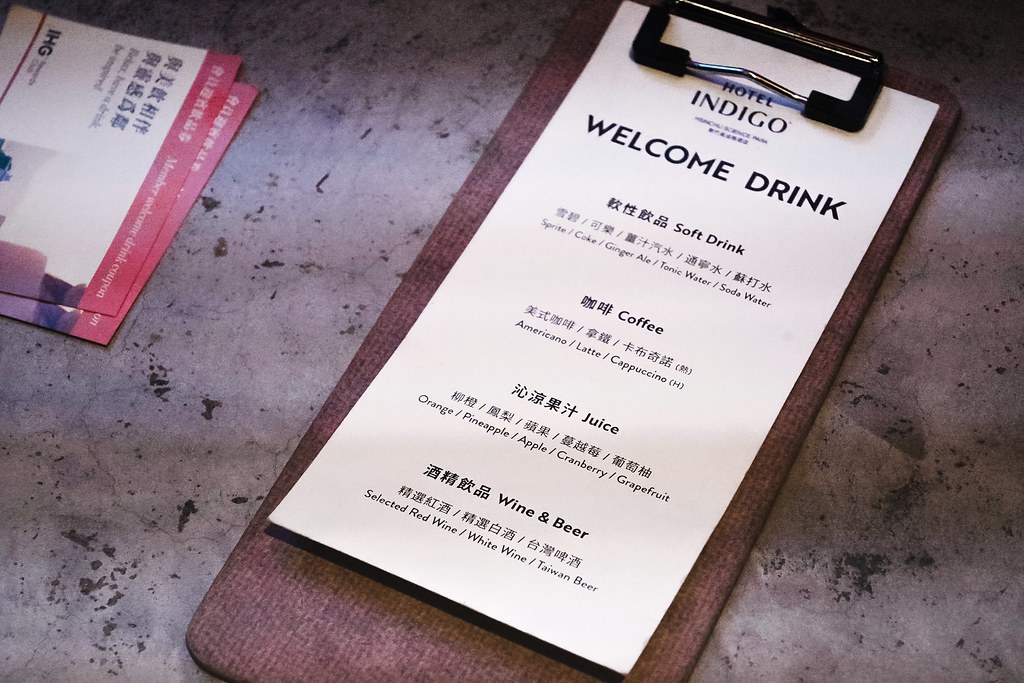 IHG
與美飲相伴
與靈感為鄰
Relax, have a drink,
be inspired
會員迎賓飲品券 Member welcome drink coupon
on
HOTEL
INDIGO
HSINCHU SCIENCE PARK
WELCOME DRINK
軟性飲品 Soft Drink
雪碧 / 可樂 / 薑汁汽水 / 通寧水 / 蘇打水
Sprite / Coke / Ginger Ale / Tonic Water / Soda Water
咖啡 Coffee
美式咖啡 / 拿鐵 / 卡布奇諾 (熱)
Americano / Latte / Cappuccino (H)
沁涼果汁 Juice
柳橙 / 鳳梨 / 蘋果 / 蔓越莓 / 葡萄柚
Orange / Pineapple / Apple / Cranberry / Grapefruit
酒精飲品 Wine & Beer
精選紅酒 / 精選白酒 / 台灣啤酒
Selected Red Wine / White Wine / Taiwan Beer